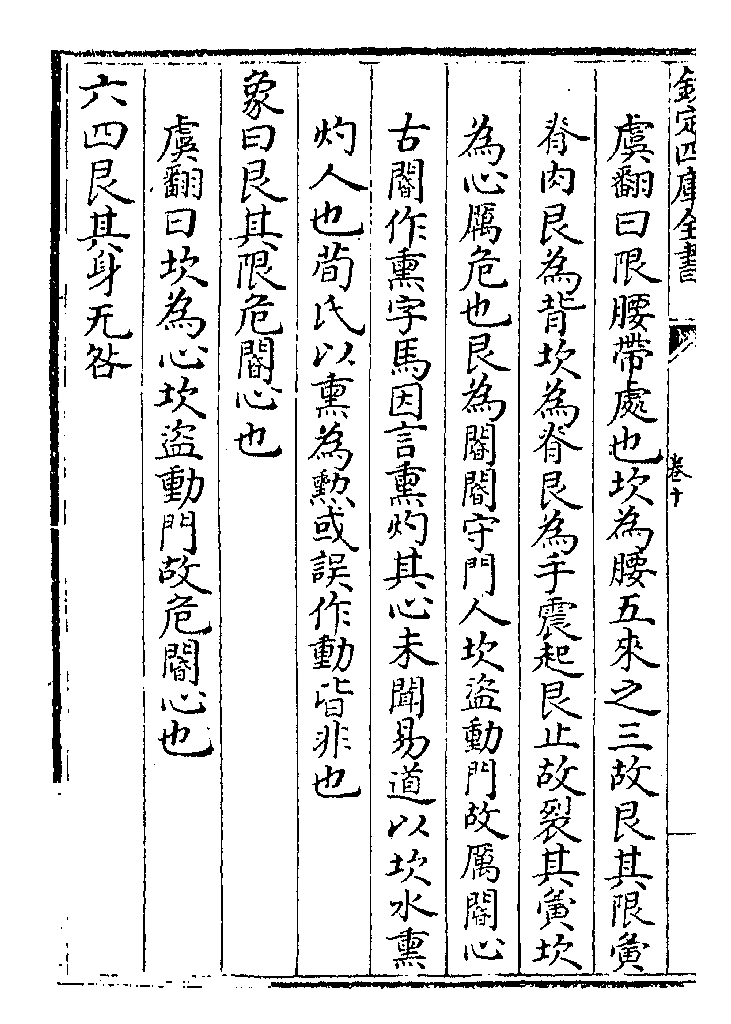 欽定四庫全書
卷十
虞翻曰限腰帶處也坎為腰五來之三故艮其限夤
脊肉艮為背坎為脊艮為手震起艮止故裂其夤坎
為心厲危也艮為閽閽守門人坎盜動門故厲閽心
古閽作熏字馬因言熏灼其心未聞易道以坎水熏
灼人也荀氏以熏為勲或誤作動皆非也
象曰艮其限危閽心也
虞翻曰坎為心坎盜動門故危閽心也
六四艮其身无咎